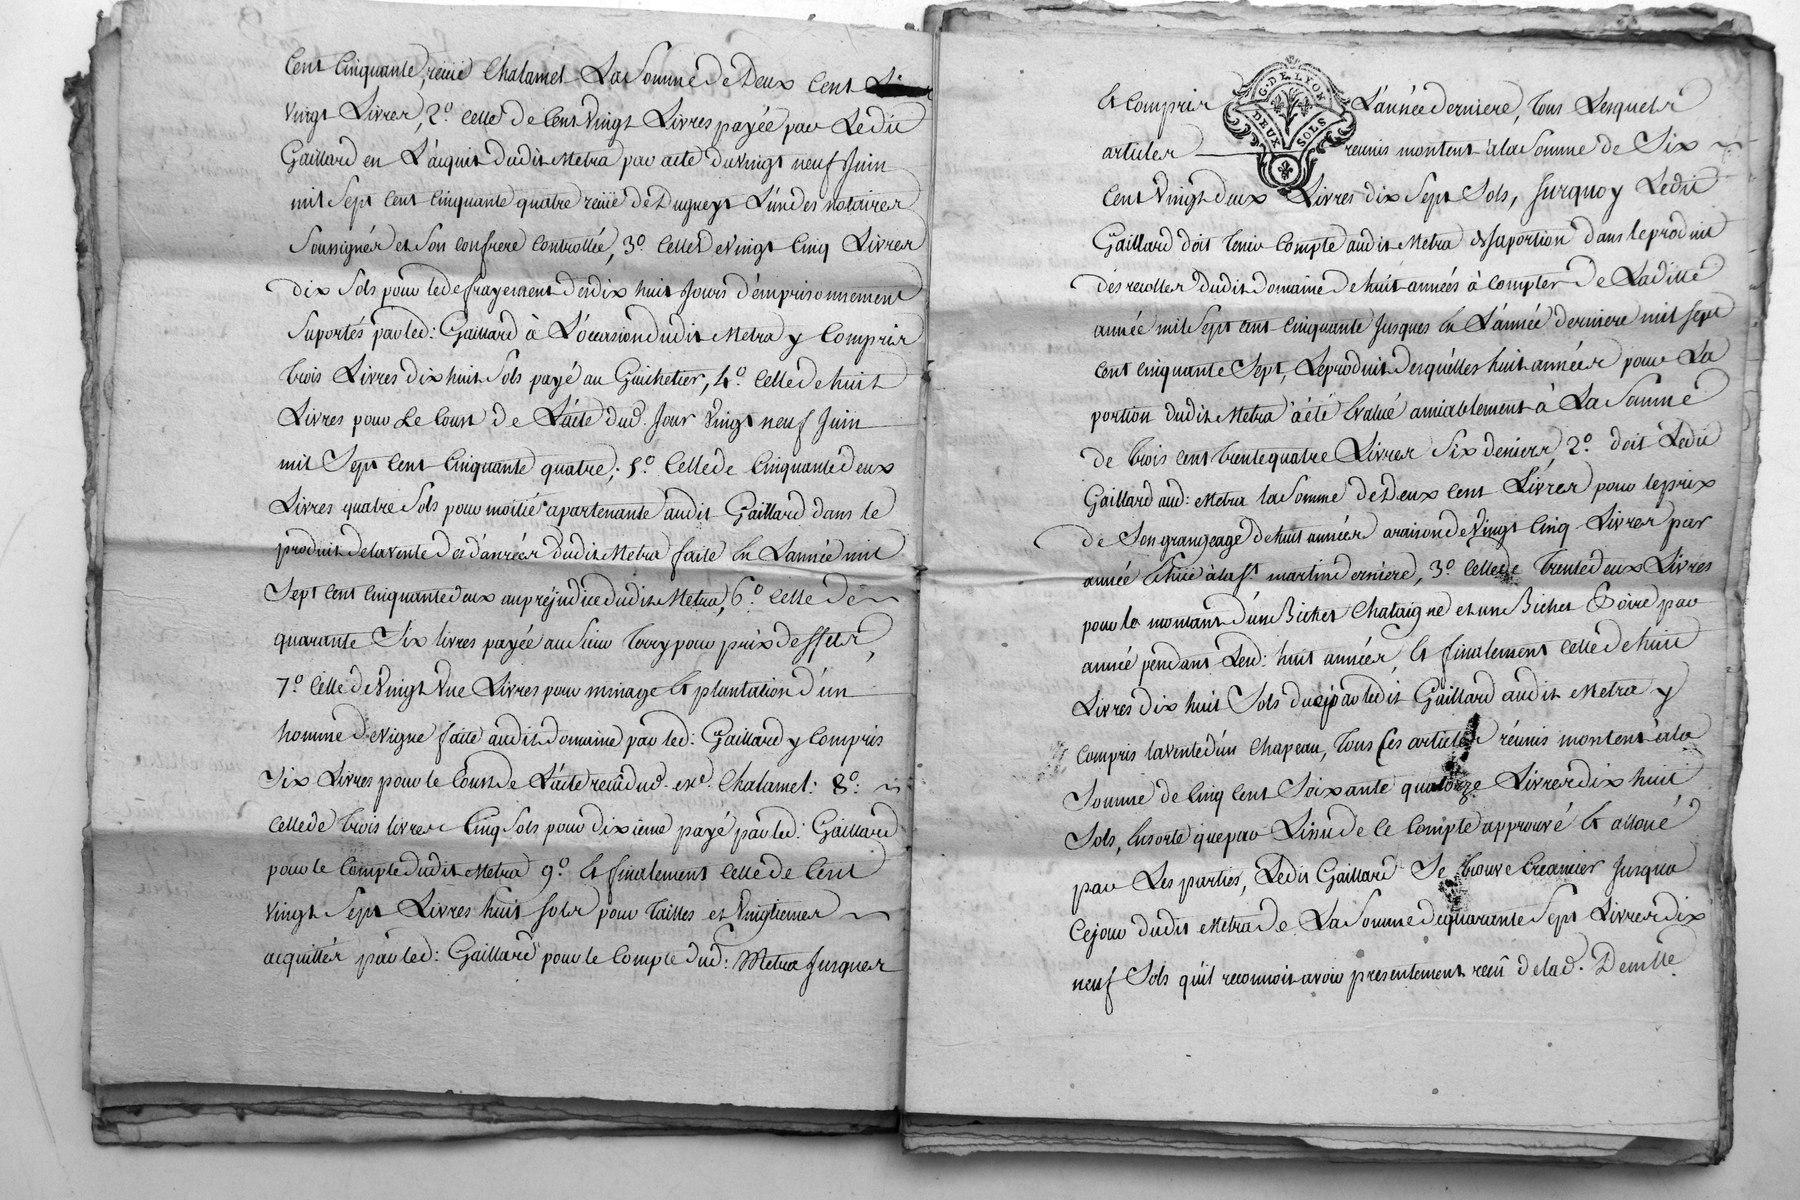 Cent Cinquante, reüe Chalamel La Somme de Deux Cent
Vingt Livres, 2.º celle de Cent Vingt Livres payée par Ledit
Gaillard en L'acquit dudit Metra par acte du Vingt neuf Juin
mil Sept Cent Cinquante quatre reüe de Dugueyt L'un des notaires
Soussignés et Son confrere controllée, 3º celle de Vingt Cinq Livres
dix Sols pour le defrayement des dix huit Jours d'emprisonnement
Suportés par led: Gaillard à L'occasion dudit Metra y Compris
trois Livres dix huit Sols payé au Guichetier, 4.º Celle de huit
Livres pour Le Coust de L'acte dud. Jour Vingt neuf Juin
mil Sept Cent Cinquante quatre; 5.º Celle de Cinquante deux
Livres quatre Sols pour moitié apartenante audit Gaillard dans le
produit de la vente des danrées dudit Metra faite En L'année mil
Sept Cent Cinquante deux au prejudice dudit Metra, 6.º Celle de
quarante Six livres payée au Sieur Terry pour prix d'effets,
7.º Celle de Vingt Une Livres pour minage Et plantation d'un
homme de vigne faite audit domaine par led: Gaillard y Compris
Six Livres pour le Coust de L'acte reçû dud. Chalamel: 8.º
Celle de trois livres Cinq Sols pour dixieme payé par led: Gaillard
pour le Compte dudit Metra 9.º Et finalement Celle de Cent
Vingt Sept Livres huit Sols pour Tailles et Vingtiemes
acquittés par led: Gaillard pour le Compte dud: Metra Jusques
Et Compris L'année derniere, Tous Lesquels
G. DE LYON
DEUX SOLS
articles reunis montent à la Somme de Six
Cent Vingt deux Livres dix Sept Sols, Surquoy Ledit
Gaillard doit Tenir Compte audit Metra de Sa portion dans le produit
des recoltes dudit Domaine de huit années à Compter de La ditte
année mil Sept Cent Cinquante Jusques En L'année derniere mil Sept
Cent Cinquante Sept, Le produit desquelles huit années pour La
portion dudit Metra a été Evalué amiablement à La Somme
de Trois Cent trente quatre Livres Six deniers, 2.º doit Ledit
Gaillard aud: Metra la Somme de Deux Cent Livres pour le prix
de Son grangeage de huit années a raison de Vingt Cinq Livres par
année Echüe à la S.t martin derniere, 3.º Celle de Trente deux Livres
pour le montant d'un Bichet Chataigne et un Bichet Poire par
année pendant Lesd: huit années, Et finalement Celle de huit
Livres dix huit Sols par ledit Gaillard audit Metra y
Compris la vente d'un Chapeau, Tous Ces articles réunis montent à la
Somme de Cinq Cent Soixante quatorze Livres dix huit
Sols, Ensorte que par L'issu de Ce Compte approuvé Et alloué
par Les parties, Ledit Gaillard Se trouve Creancier Jusqua
Cejour dudit Metra de La Somme de quarante Sept Livres dix
neuf Sols qu'il reconnoit avoir presentement reçû de lad. Demlle.